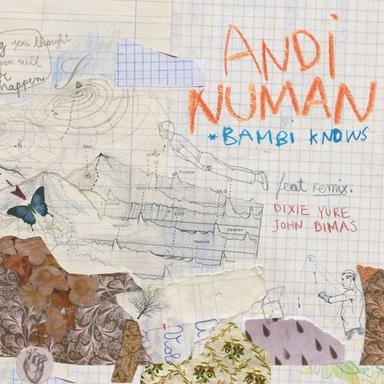 you thought
will
happen
ANDI
NUMAN
*BAMBI KNOWS
feat remix:
DIXIE YURE
JOHN DIMAS